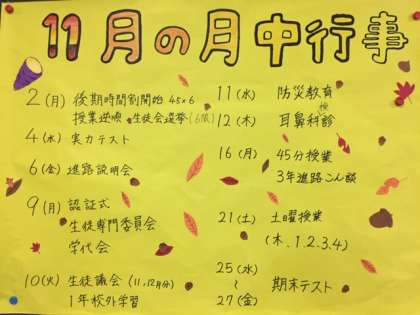 11月の月中行事
2(月) 後期時間割開始 45×6
授業逆順 生徒会選挙(6限)
4(水) 実力テスト
6(金) 進路説明会
9(月) 認証式
生徒専門委員会
学代会
10(火) 生徒議会(11,12月分)
1年校外学習
11(水) 防災教育
12(木) 耳鼻科検診
16(月) 45分授業
3年進路こん談
21(土) 土曜授業
(木.1.2.3.4)
25(水)
〜 期末テスト
27(金)